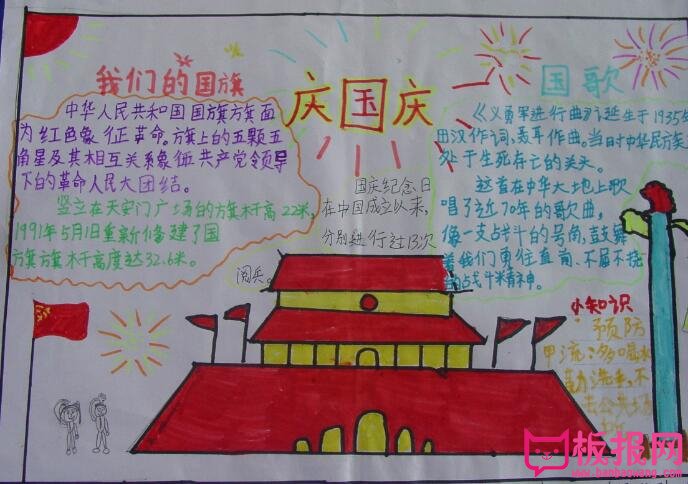 我们的国旗
中华人民共和国国旗旗面
为红色象征革命。旗上的五颗五
角星及其相互关系象征共产党领导
下的革命人民大团结。
竖立在天安门广场的旗杆高22米,
1991年5月1日重新修建了国
旗旗杆高度达32.6米。
庆国庆
国庆纪念日
在中国成立以来,
分别进行过13次
阅兵。
国歌
《义勇军进行曲》诞生于1935年
田汉作词,聂耳作曲。当时中华民族
处于生死存亡的关头。
这首在中华大地上歌
唱了近70年的歌曲,
像一支战斗的号角,鼓舞
着我们勇往直前、不屈不挠
战斗精神。
小知识
预防
甲流:多喝水
勤洗手,不
去公共场
板报网